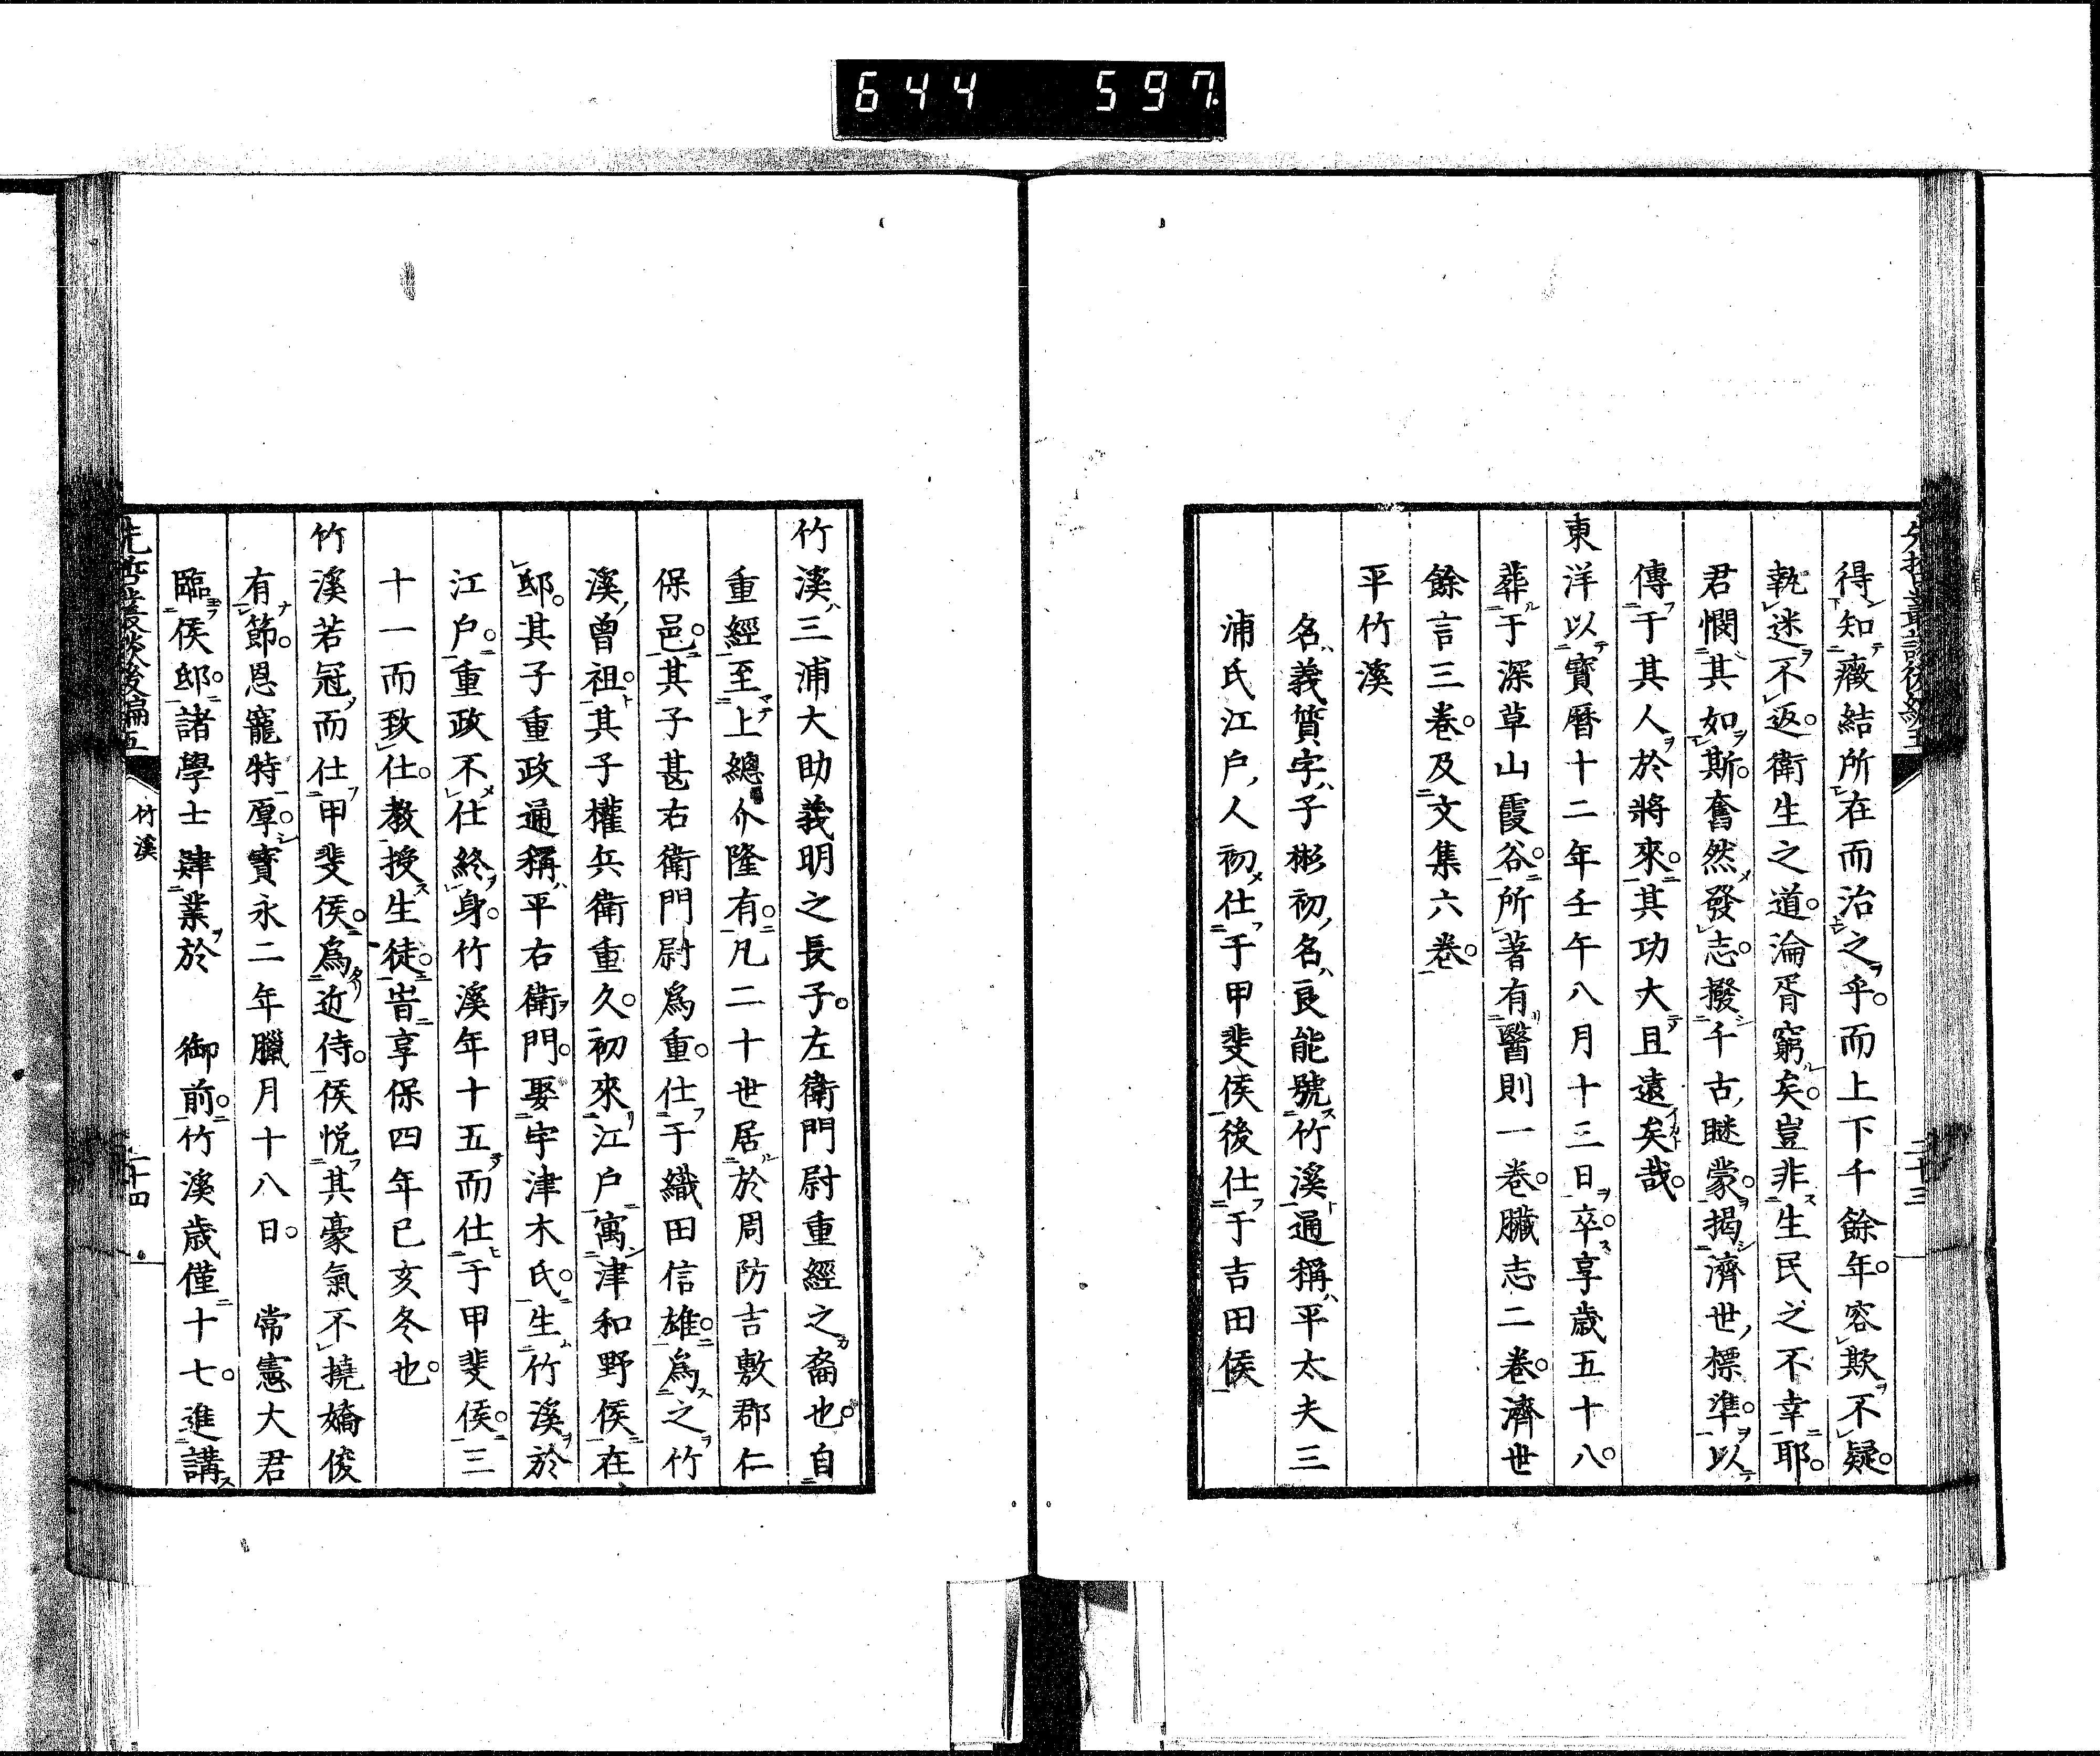 644 597
得知癥結所在而治之乎。而上下千餘年。容欺不疑。
執迷不返。衛生之道。淪胥窮矣。豈非生民之不幸耶。
君憫其如斯。奮然發志。撥千古瞇蒙。揭濟世標準。以
傳于其人於將來。其功大且遠矣哉。
東洋以寶曆十二年壬午八月十三日卒。享歲五十八。
葬于深草山霞谷。所著有醫則一卷。臟志二卷。濟世
餘言三卷。及文集六卷。
平竹溪
名義質字子彬初名良能號竹溪通稱平太夫三
浦氏江戶人初仕于甲斐侯後仕于吉田侯
竹溪三浦大助義明之長子。左衛門尉重經之裔也。自
重經至上總介隆有。凡二十世居於周防吉敷郡仁
保邑。其子甚右衛門尉爲重。仕于織田信雄。爲之竹
溪曾祖。其子權兵衛重久。初來江戶寓津和野侯在
邸。其子重政通稱平右衛門。娶宇津木氏。生竹溪於
江戶。重政不仕終身。竹溪年十五而仕于甲斐侯。三
十一而致仕。教授生徒。旹享保四年己亥冬也。
竹溪若冠而仕甲斐侯。爲近侍。侯悅其豪氣不撓嬌俊
有節。恩寵特厚。寶永二年臘月十八日。 常憲大君
臨侯邸。諸學士肄業於 御前。竹溪歲僅十七。進講
竹溪
二十四